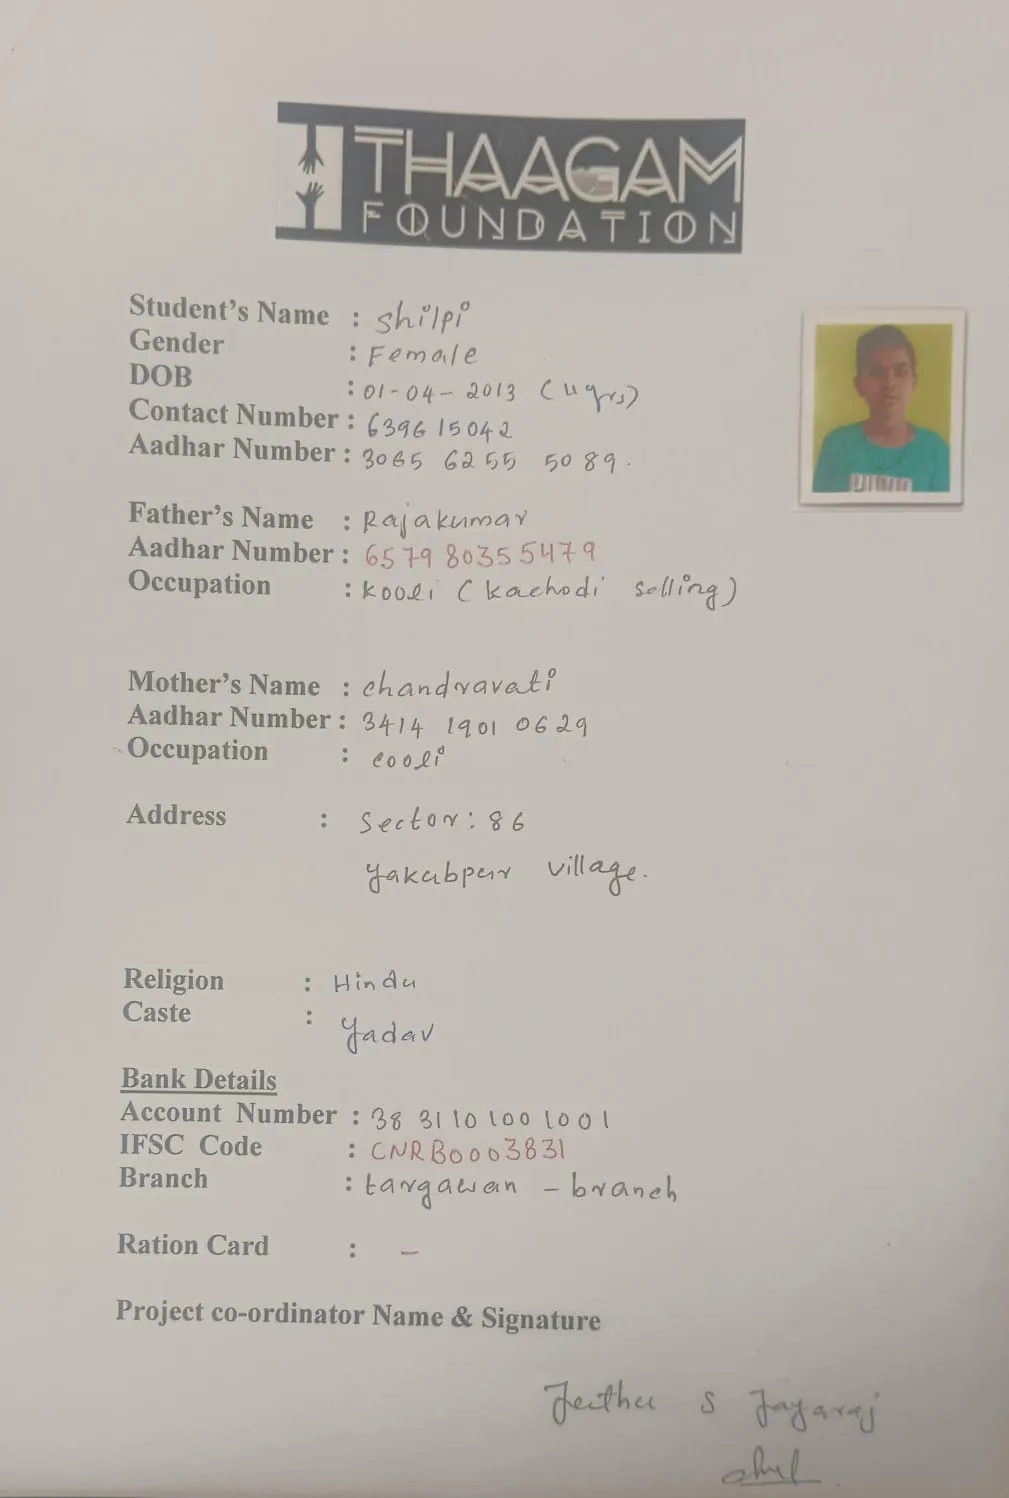 THAAGAM
FOUNDATION
Student's Name : Shilpi
Gender : Female
DOB : 01-04-2013 (11 yrs)
Contact Number : 639615042
Aadhar Number : 3065 6255 5089.
Father's Name : Rajakumar
Aadhar Number : 657980355479
Occupation : kooli (kachodi selling)
Mother's Name : chandravati
Aadhar Number : 3414 1901 0629
Occupation : cooli
Address : Sector: 86
Yakubpur village.
Religion : Hindu
Caste : Yadav
Bank Details
Account Number : 38 3110 100 1001
IFSC Code : CNRB0003831
Branch : targawan - branch
Ration Card : -
Project co-ordinator Name & Signature
S Jayaraj